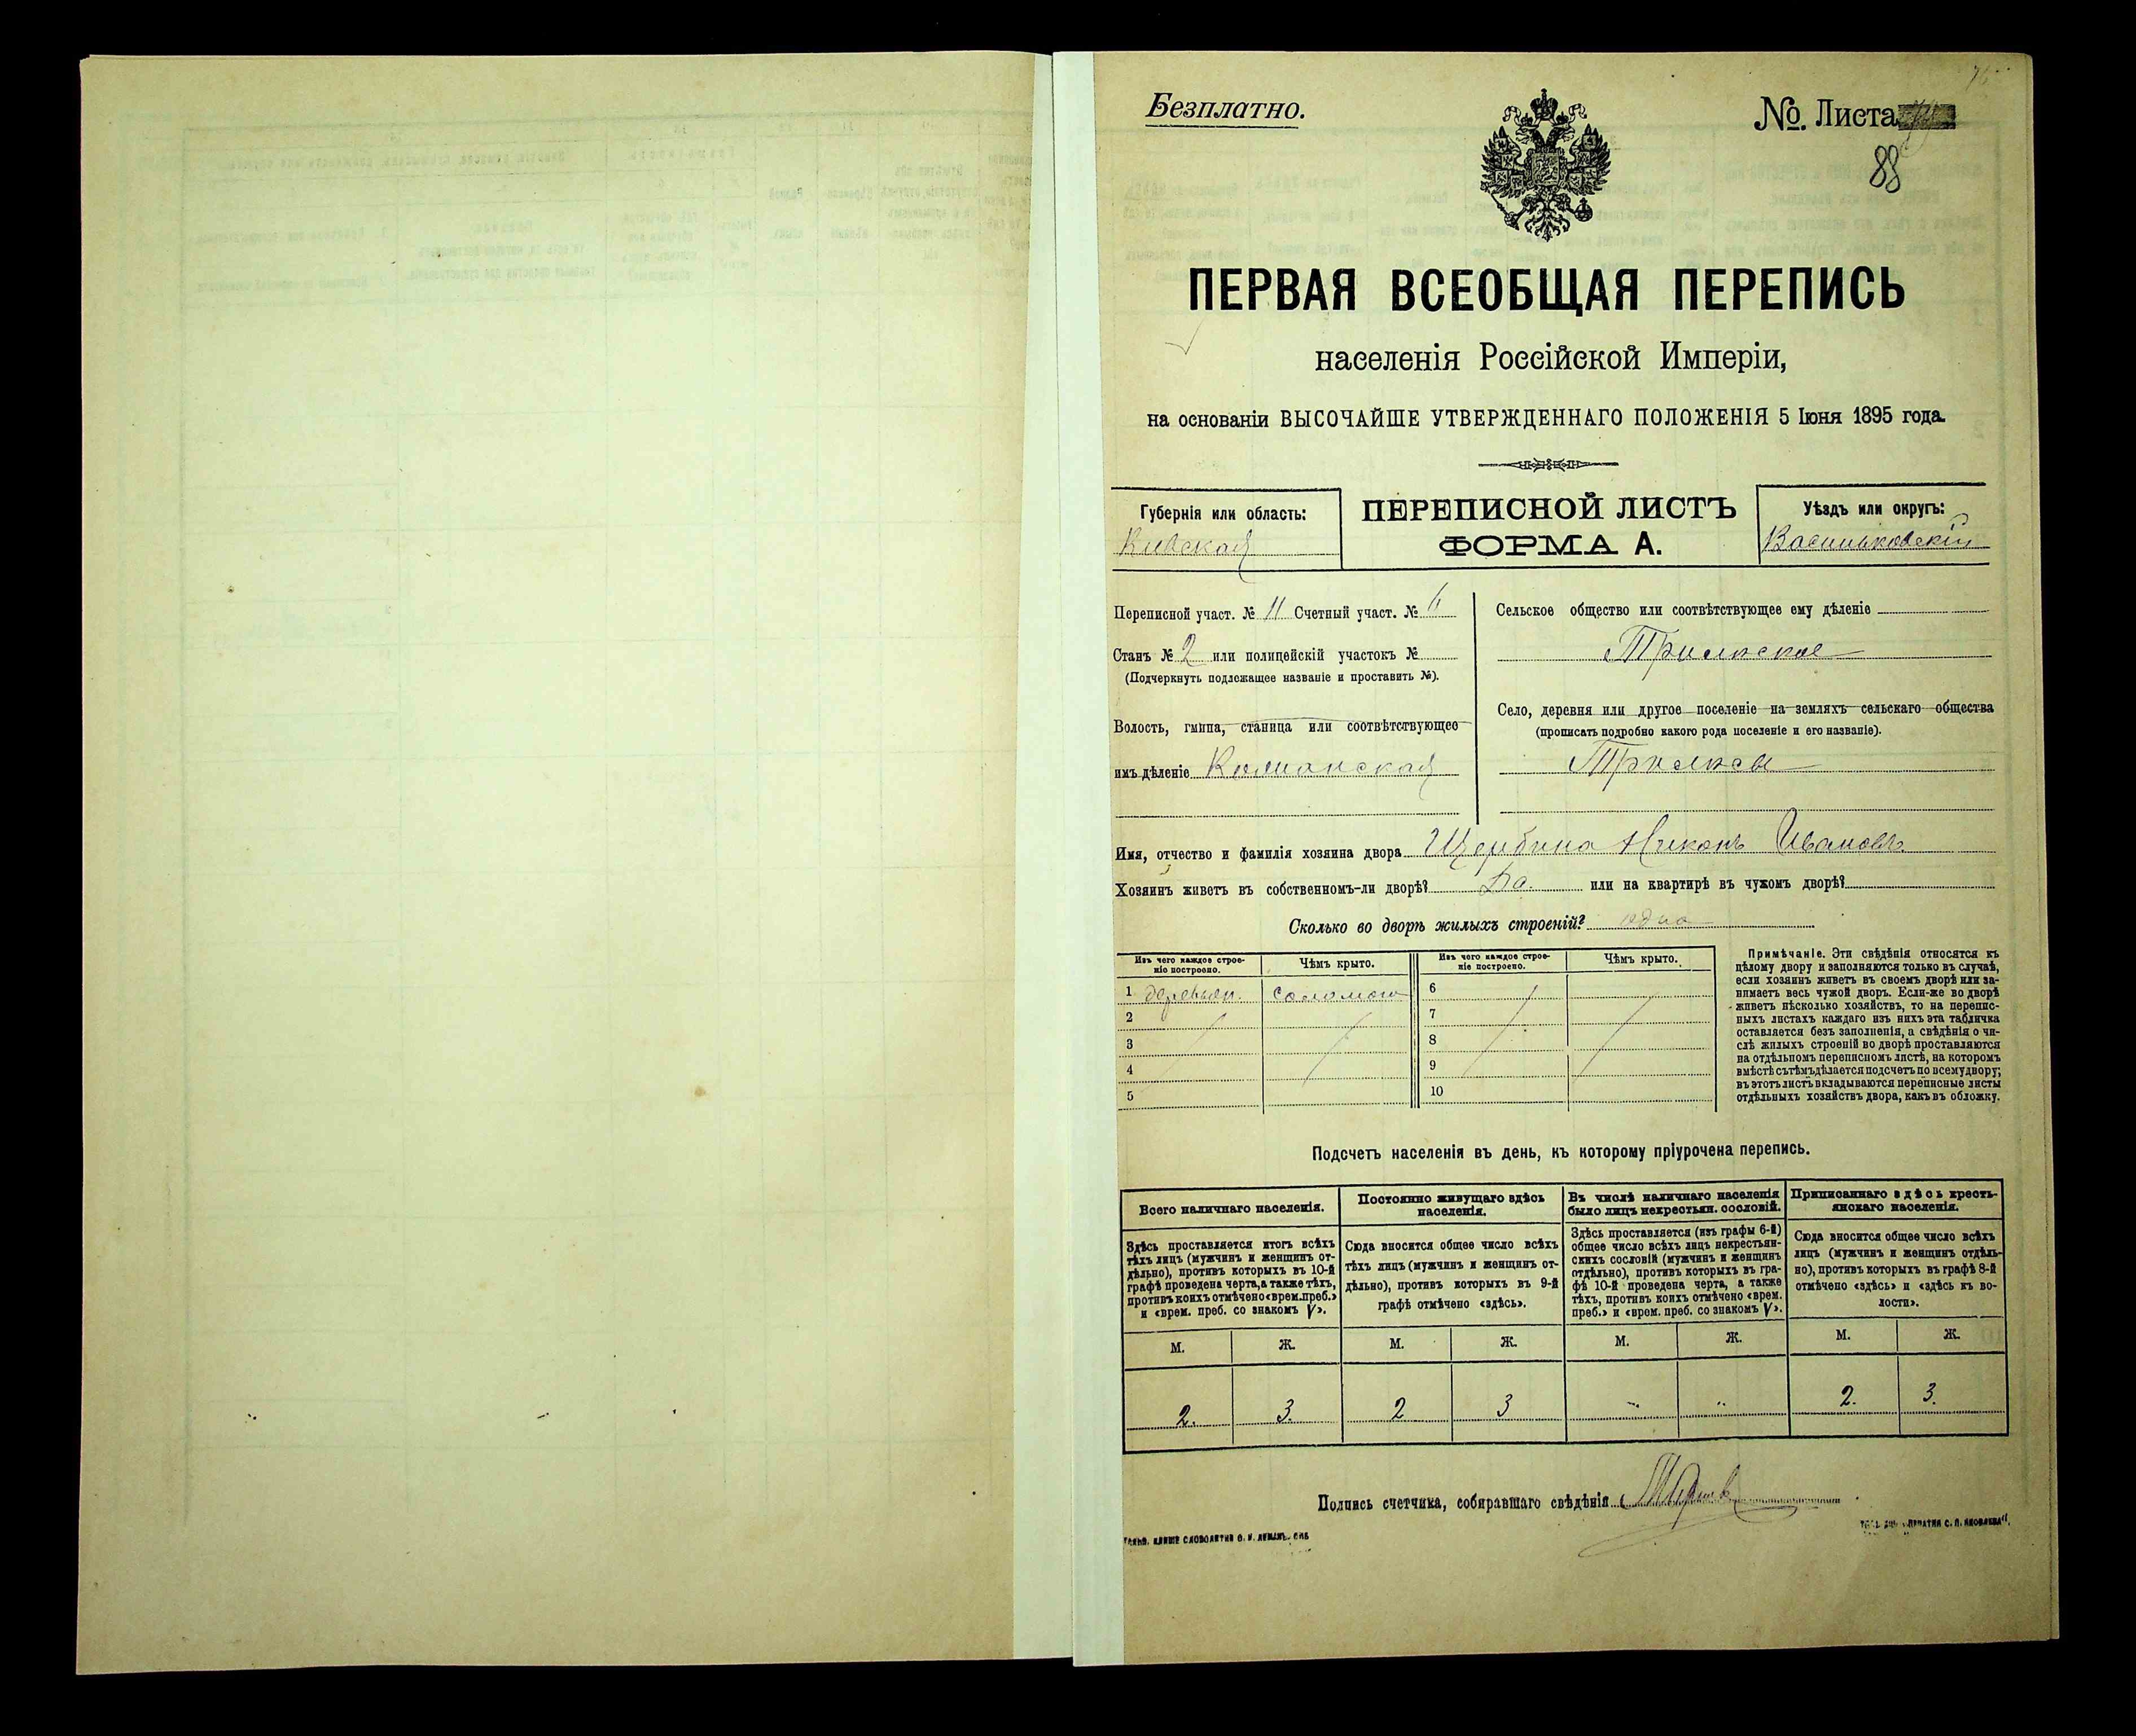 Безплатно.
№. Листа
88
ПЕРВАЯ ВСЕОБЩАЯ ПЕРЕПИСЬ
населенія Россійской Имперіи,
на основаніи ВЫСОЧАЙШЕ УТВЕРЖДЕННАГО ПОЛОЖЕНІЯ 5 Іюня 1895 года.
Губернія или область:
Кіевская
ПЕРЕПИСНОЙ ЛИСТЪ
ФОРМА А.
Уѣздъ или округъ:
Васильковскій
Переписной участ. № 11 Счетный участ. № 6
Станъ № 2 или полицейскій участокъ №
(Подчеркнуть подлежащее названіе и проставить №).
Волость, гмина, станица или соотвѣтствующее
имъ дѣленіе
Сельское общество или соотвѣтствующее ему дѣленіе
Трилѣсское
Село, деревня или другое поселеніе на земляхъ сельскаго общества
(прописать подробно какого рода поселеніе и его названіе).
Трилѣсы
Имя, отчество и фамилія хозяина двора Щербина Никонъ Ивановъ
Хозяинъ живетъ въ собственномъ-ли дворѣ? Да. или на квартирѣ въ чужомъ дворѣ?
Сколько во дворѣ жилыхъ строеній? одно
Изъ чего каждое строе-
ніе построено.
Чѣмъ крыто.
Изъ чего каждое строе-
ніе построено.
Чѣмъ крыто.
1 деревян. соломою 6
2 7
3 8
4 9
5 10
Примѣчаніе. Эти свѣдѣнія относятся къ
цѣлому двору и заполняются только въ случаѣ,
если хозяинъ живетъ въ своемъ дворѣ или за-
нимаетъ весь чужой дворъ. Если-же во дворѣ
живетъ нѣсколько хозяйствъ, то на перепис-
ныхъ листахъ каждаго изъ нихъ эта табличка
оставляется безъ заполненія, а свѣдѣнія о чи-
слѣ жилыхъ строеній во дворѣ проставляются
на отдѣльномъ переписномъ листѣ, на которомъ
вмѣстѣ съ тѣмъ дѣлается подсчетъ по всему двору;
въ этотъ листъ вкладываются переписные листы
отдѣльныхъ хозяйствъ двора, какъ въ обложку.
Подсчетъ населенія въ день, къ которому пріурочена перепись.
Всего наличнаго населенія.
Здѣсь проставляется итогъ всѣхъ
тѣхъ лицъ (мужчинъ и женщинъ от-
дѣльно), противъ которыхъ въ 10-й
графѣ проведена черта, а также тѣхъ,
противъ коихъ отмѣчено «врем. преб.»
и «врем. преб. со знакомъ V».
Постоянно живущаго здѣсь
населенія.
Сюда вносится общее число всѣхъ
тѣхъ лицъ (мужчинъ и женщинъ от-
дѣльно), противъ которыхъ въ 9-й
графѣ отмѣчено «здѣсь».
Въ числѣ наличнаго населенія
было лицъ некрестьян. сословій.
Здѣсь проставляется (изъ графы 6-й)
общее число всѣхъ лицъ некрестьян-
скихъ сословій (мужчинъ и женщинъ
отдѣльно), противъ которыхъ въ гра-
фѣ 10-й проведена черта, а также
тѣхъ, противъ коихъ отмѣчено «врем.
преб.» и «врем. преб. со знакомъ V».
Приписаннаго здѣсь кресть-
янскаго населенія.
Сюда вносится общее число всѣхъ
лицъ (мужчинъ и женщинъ отдѣль-
но), противъ которыхъ въ графѣ 8-й
отмѣчено «здѣсь» и «здѣсь къ во-
лости».
М. Ж. М. Ж. М. Ж. М. Ж.
2. 3. 2 3 2. 3.
Подпись счетчика, собиравшаго свѣдѣнія